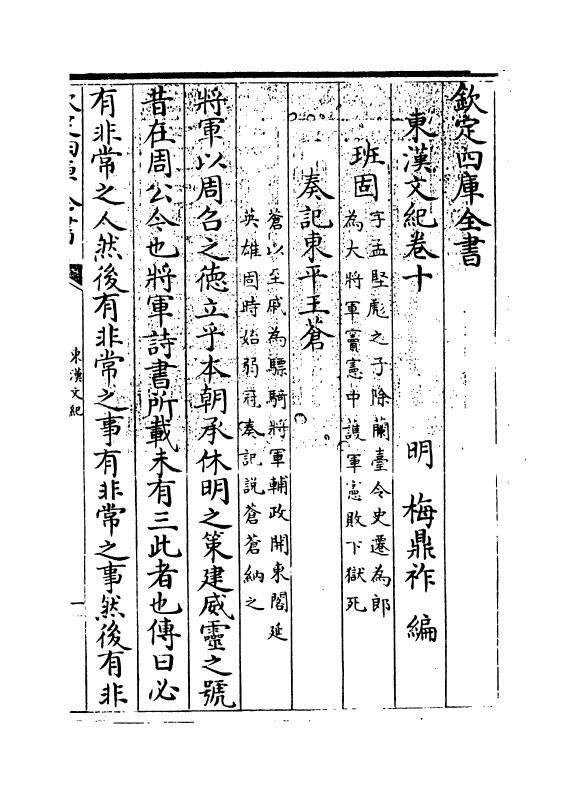 欽定四庫全書
東漢文紀卷十
明　梅鼎祚　編
班固
字孟堅彪之子除蘭臺令史遷為郎
為大將軍竇憲中護軍憲敗下獄死
奏記東平王蒼
蒼以至戚為驃騎將軍輔政開東閤延
英雄固時始弱冠奏記説蒼蒼納之
將軍以周召之徳立乎本朝承休明之策建威靈之號
昔在周公今也將軍詩書所載未有三此者也傳曰必
有非常之人然後有非常之事有非常之事然後有非
東漢文紀
一